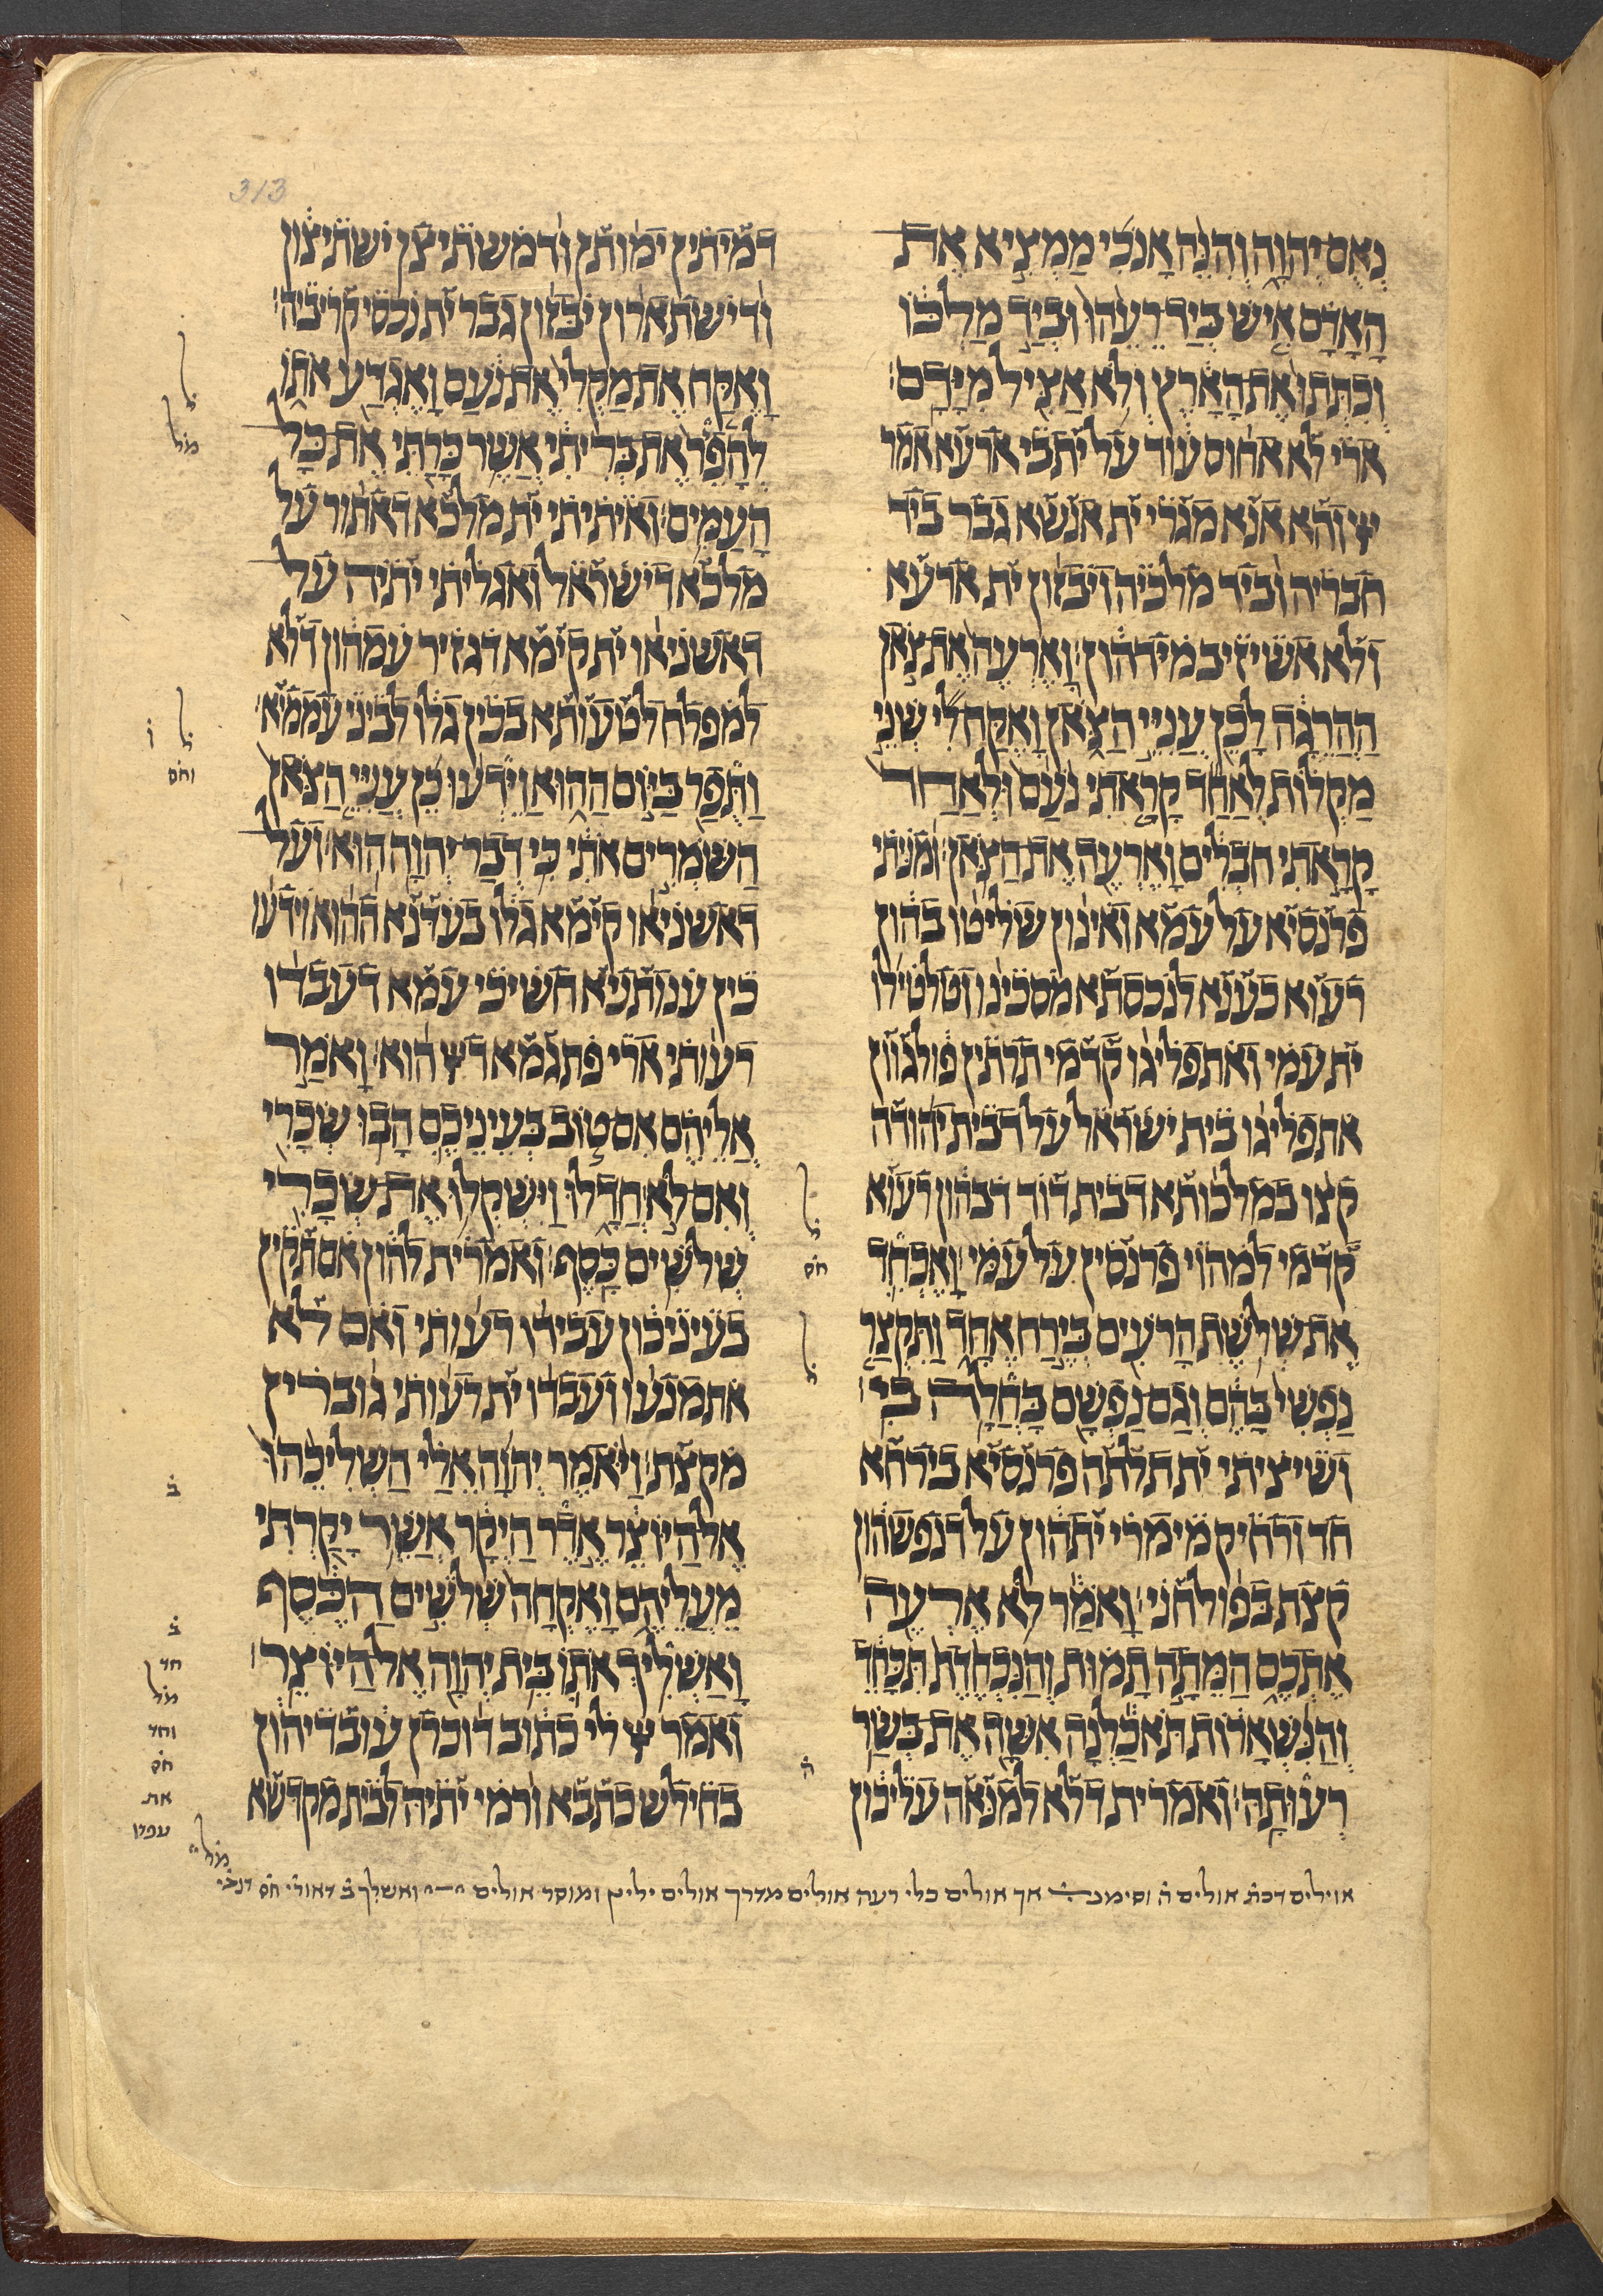 313
נאם יהוה והנה אנכי ממציא את
האדם איש ביד רעהו וביד מלכו
וכתתו את הארץ ולא אציל מידם׃
ארי לא אחוס עוד על יתבי ארעא אמר
ייי והא אנא מגרי ית אנשא גבר ביד
חבריה וביד מלכיה ויבזון ית ארעא
ולא אשיזיב מידהון׃ וארעה את צאן
ההרגה לכן עניי הצאן ואקח לי שני
מקלות לאחד קראתי נעם ולאחד
קראתי חבלים וארעה את הצאן׃ ומניתי
פרנסיא על עמא ואינון שליטו בהון
רעוא כענא לנכסתא מסכינו וטלטילו
ית עמי ואתפליגו קדמי תרתין פולגוון
אתפליגו בית ישראל על דבית יהודה
קצו במלכותא דבית דויד דבהון רעוא
קדמי למהוי פרנסין על עמי׃ ואכחד
את שלשת הרעים בירח אחד ותקצר
נפשי בהם וגם נפשם בחלה בי׃
ושיציתי ית תלתה פרנסיא בירחא
חד ורחיק מימרי יתהון על דנפשהון
קצת בפולחני׃ ואמר לא ארעה
אתכם המתה תמות והנכחדת תכחד
והנשארות תאכלנה אשה את בשר
רעותה׃ ואמרית דלא למנאה עליכון
דמיתין ימותן ודמשתיצן ישתיצון
ודישתארון יבזון גבר ית נכסי קריביה׃
ואקח את מקלי את נעם ואגדע אתו
להפר את בריתי אשר כרתי את כל
העמים׃ ואיתיתי ית מלכא דאתור על
מלכא דישראל ואגליתי יתיה על
דאשניאו ית קימא דגזיר עמהון דלא
למפלח לטעותא בכין גלו לביני עממיא׃
ותפר ביום ההוא וידעו כן עניי הצאן
השמרים אתי כי דבר יהוה הוא׃ ועל
דאשניאו קימא גלו בעדנא ההוא וידעו
כין ענותניא חשיכי עמא דעבדו
רעותי ארי פתגמא דייי הוא׃ ואמר
אליהם אם טוב בעיניכם הבו שכרי
ואם לא חדלו וישקלו את שכרי
שלשים כסף׃ ואמרית להון אם תקין
בעיניכון עבידו רעותי ואם לא
אתמנעו ועבדו ית רעותי גוברין
מקצת׃ ויאמר יהוה אלי השליכהו
אל היוצר אדר היקר אשר יקרתי
מעליהם ואקחה שלשים הכסף
ואשליך אתו בית יהוה אל היוצר׃
ואמר ייי לי כתוב דוכרן עובדיהון
בחילש כתבא ורמי יתיה לבית מקדשא
ל
מל
ל
ו
וחס
ל
חס
ל
ב
ב
חד
מל
וחד
חס
את
ה
אוילים דכת אולים ה וסימנ אך אולים כלי רעה אולים מדרך אולים יליץ ומוסר אולים ואשלך ב דאורי חס דנבי